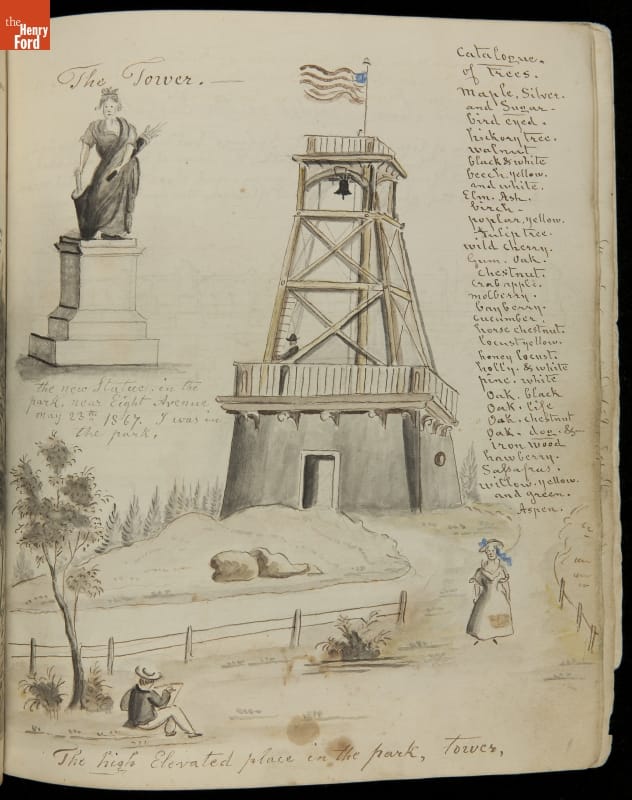 the
Henry
Ford
The Tower. —
the new Statue. in the
park, near Eight Avenue
may 23th 1867. I was in
the park.
Catalogue.
of Trees.
Maple, Silver.
and Sugar.
bird eyed.
hickory tree.
walnut
black & white
beech, yellow.
and white.
Elm. Ash.
birch -
poplar, yellow.
Tulip tree.
wild cherry.
Gum. Oak.
chestnut.
crab apple.
molberry.
bayberry.
cucumber.
horse chestnut.
locust yellow.
honey locust.
holly. & white
pine. white
Oak. black
Oak. life
Oak. chestnut
Oak. dog. &-
iron wood
hawberry.
Salsafras.
willow, yellow.
and green.
Aspen.
The high Elevated place in the park, tower,